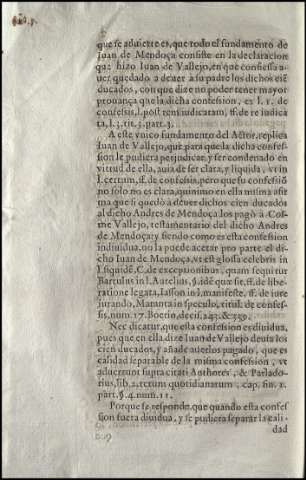 que se aduierte es, que todo el fundamento de
Iuan de Mendoça consiste en la declaracion
que hizo Iuan de Vallejo, en que confiessa a-
uer quedado a deuer a su padre los dichos ciẽ
ducados, con que dize no poder tener mayor
prouança que la dicha confesion, ex l. 1. de
confesis, l. post rem iudicatam, ff. de re iudica
ta, l. 3. tit. 3. part. 3.
A este vnico fundamento del Actor, replica
Iuan de Vallejo, que para que la dicha confes-
sion le pudiera perjudicar, y ser condenado en
virtud de ella, auia de ser clara, y liquida, vt in
l. certum, ff. de confesis, pero que su confessiõ
no solo no es clara, quinimo en ella misma afir
ma que si quedò a deuer dichos cien ducados
al dicho Andres de Mendoça los pagò a Cos-
me Vallejo, testamentario del dicho Andres
de Mendoça: y siendo como es esta confession
indiuidua, no la puede acetar pro parte el di-
cho Iuan de Mendoça, vt est glossa celebris in
l. si quidẽ, C. de exceptionibus, quam sequitur
Bartulus in l. Aurelius, §. idẽ quæsijt, ff. de libe-
ratione legata, Iasson in l. manifestæ, ff. de iure
iurando, Maranta in speculo, titul. de confes-
sis, num. 17. Boerio, decis. 243. & 359.
Nec dicatur, que esta confession es diuidua,
pues que en ella dize Iuan de Vallejo deuia los
cien ducados, y añade auerlos pagado, que es
calidad separable de la misma confession, vt
aduertunt supra citati Authores, & Parlado-
rius, lib. 2. rerum quotidianarum, cap. fin. 1.
part. §. 4. num. 11.
Porque se responde, que quando esta confes
sion fuera diuidua, y se pudiera separar la cali-
dad